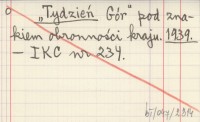 „Tydzień Gór" pod zna-
kiem obronności kraju. 1939.
— IKC nr 234.